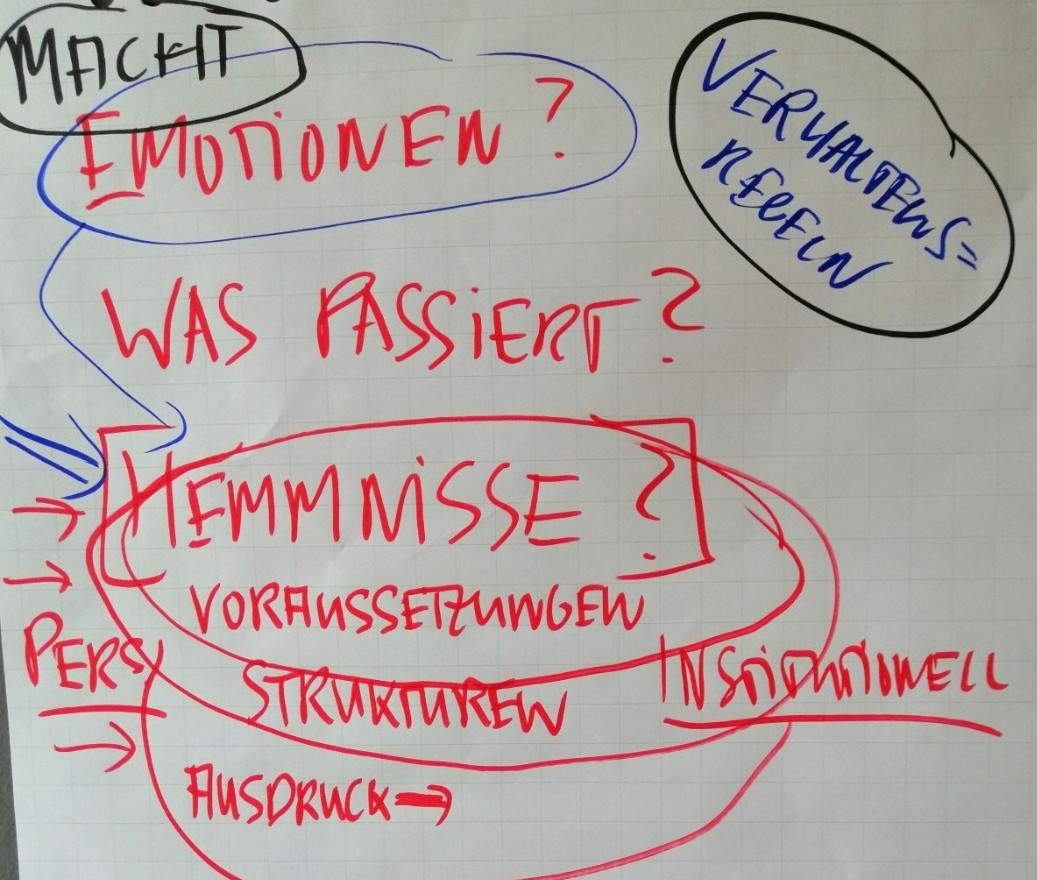 MACHT
EMOTIONEN?
VERHALTENS=
REGELN
WAS PASSIERT?
HEMMNISSE?
VORAUSSETZUNGEN
PERS
STRUKTUREN
INSTITUTIONELL
AUSDRUCK →